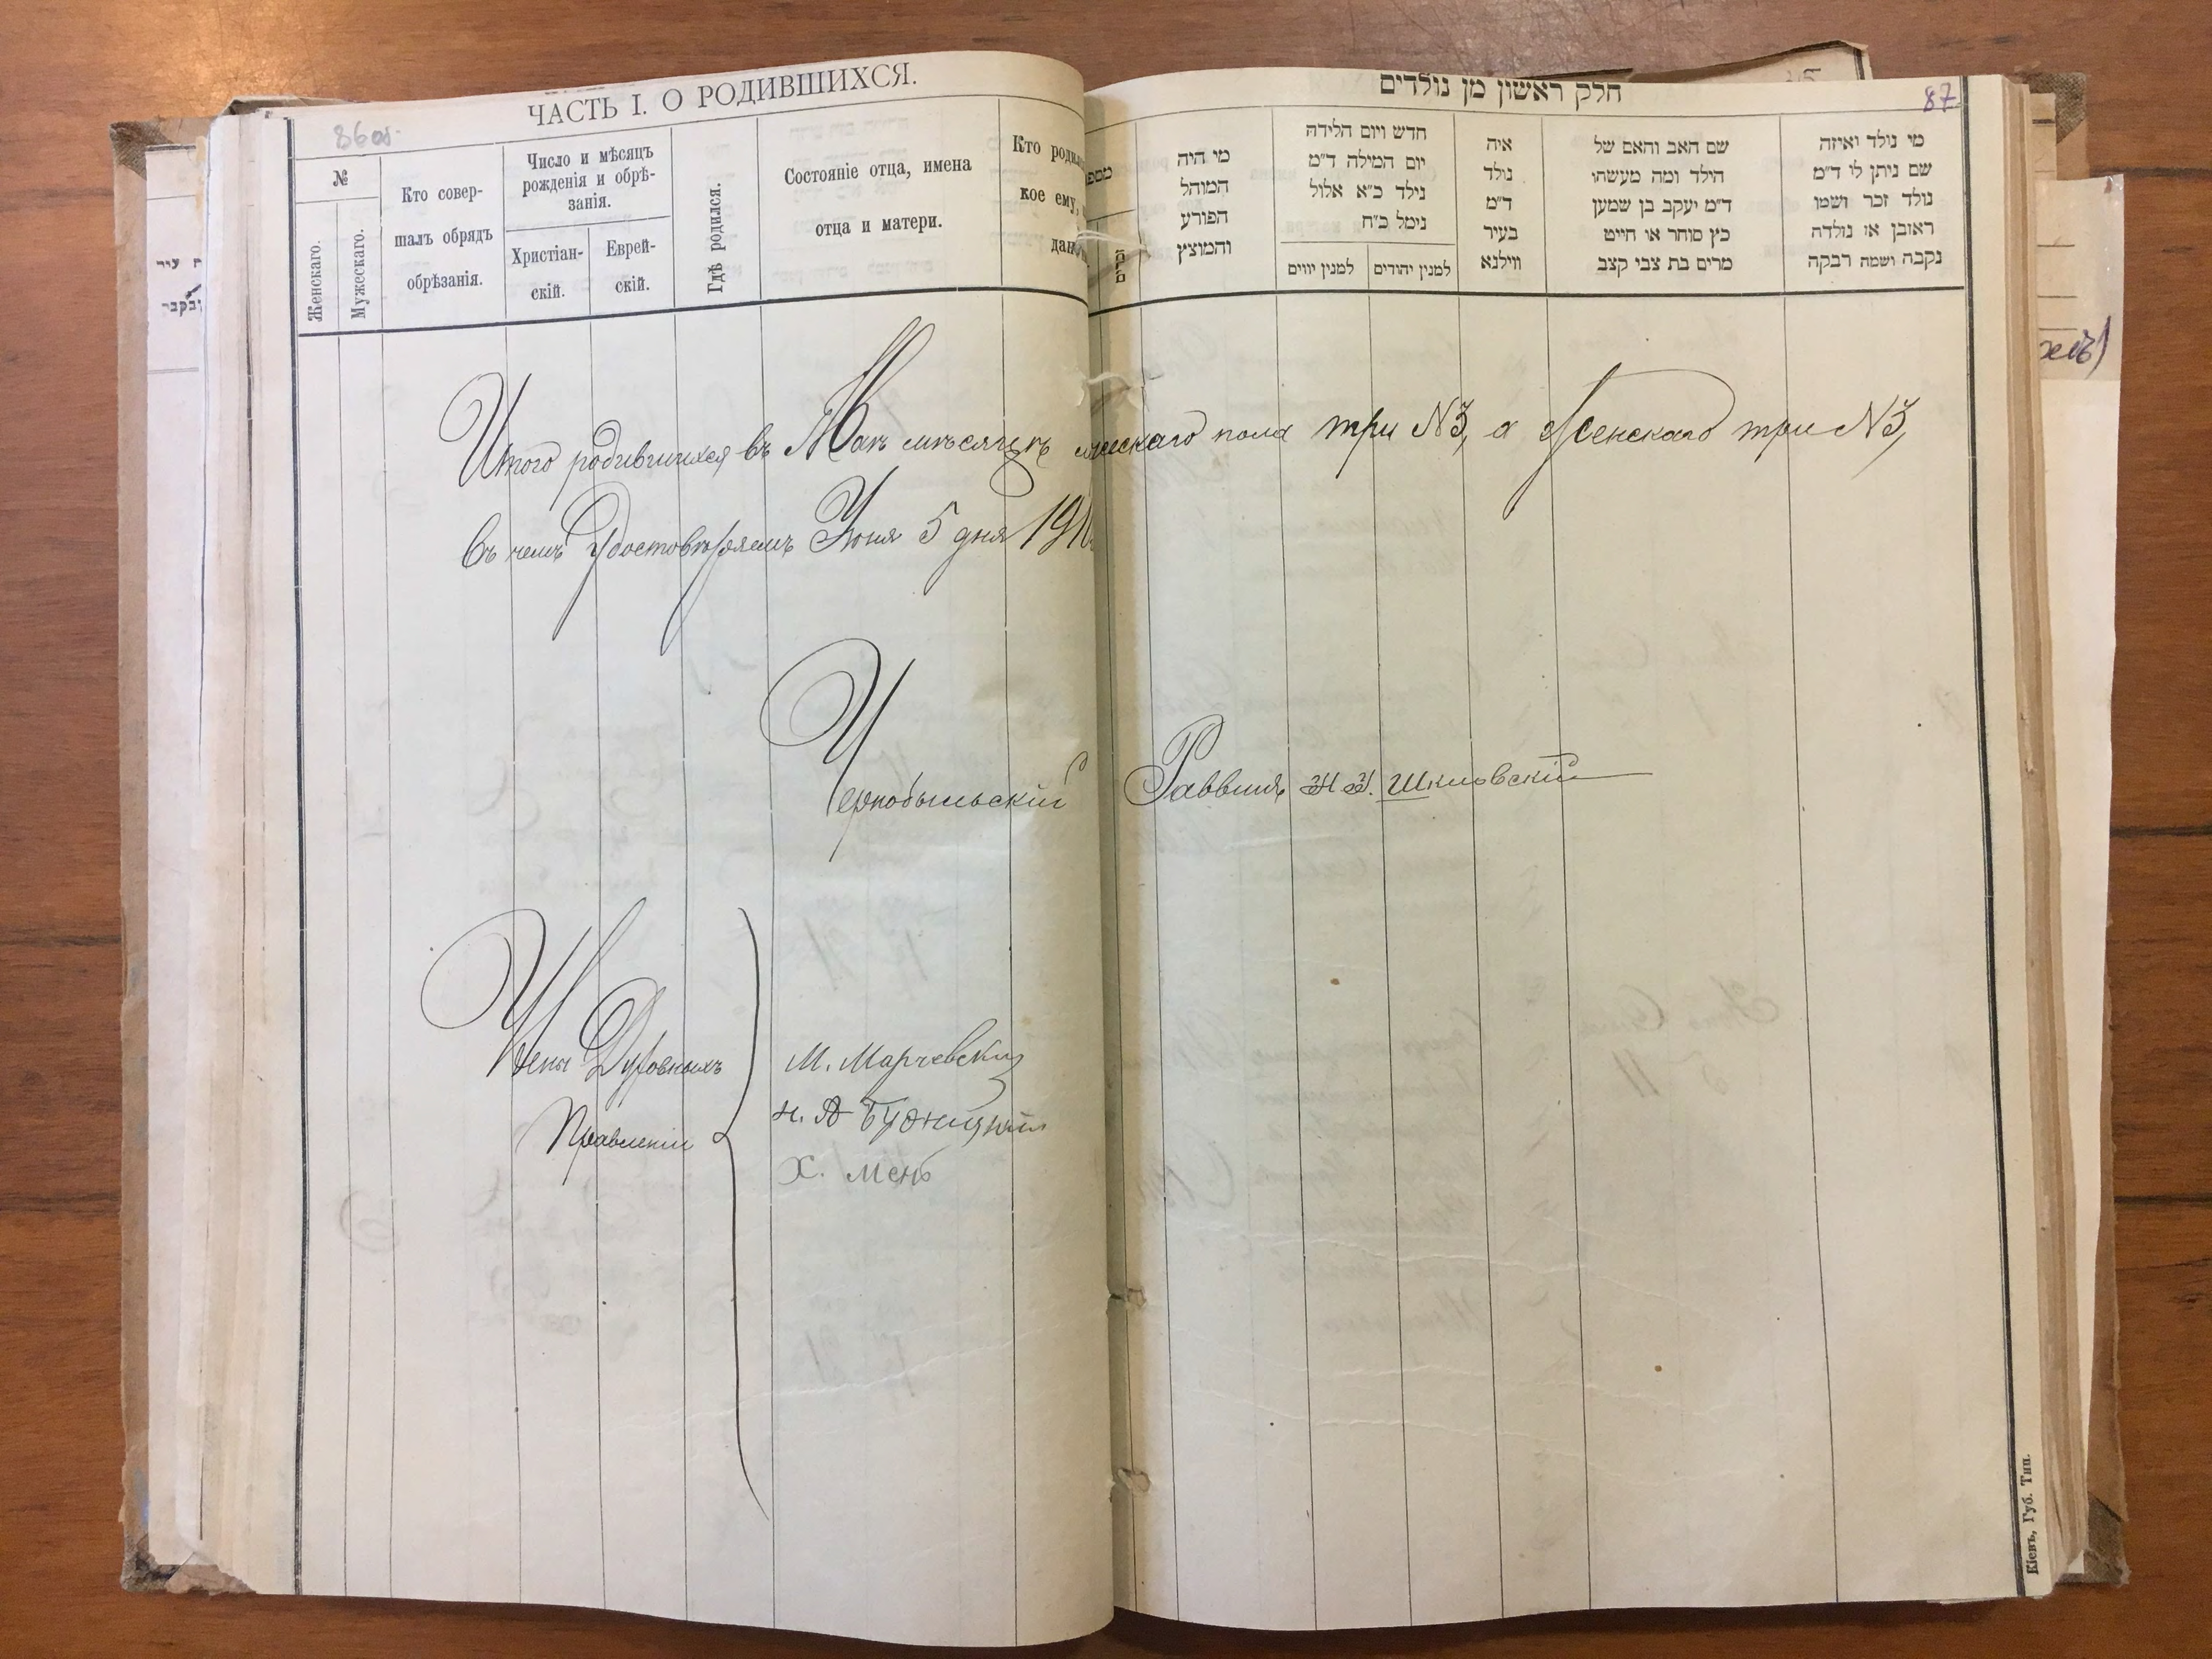 ЧАСТЬ I. О РОДИВШИХСЯ.
86об.
№
Женскаго.
Мужескаго.
Кто совер-
шалъ обрядъ
обрѣзанія.
Число и мѣсяцъ
рожденія и обрѣ-
занія.
Христіан-
скій.
Еврей-
скій.
Гдѣ родился.
Состояніе отца, имена
отца и матери.
Кто роди
кое ему,
дано
חלק ראשון מן נולדים
87
זכרים
מי היה
המוהל
הפורע
והמוצץ
חדש ויום הלידה
יום המילה ד״מ
נילד כ״א אלול
נימל כ״ח
למנין יווים
למנין יהודים
איה
נולד
ד״מ
בעיר
ווילנא
שם האב והאם של
הילד ומה מעשהו
ד״מ יעקב בן שמען
כץ סוחר או חייט
מרים בת צבי קצב
מי נולד ואיזה
שם ניתן לי ד״מ
נולד זכר ושמו
ראובן או נולדה
נקבה ושמה רבקה
Итого родившихся въ Маѣ мѣсяцѣ мужескаго пола три №3, а женскаго три №3,
въ чемъ удостовѣряемъ Іюня 5 дня 191
Чернобыльскій Раввинъ Шкловскій
Члены Духовныхъ
Правленій
М. Марчевскій
Х. Мень
Кіевъ, Губ. Тип.